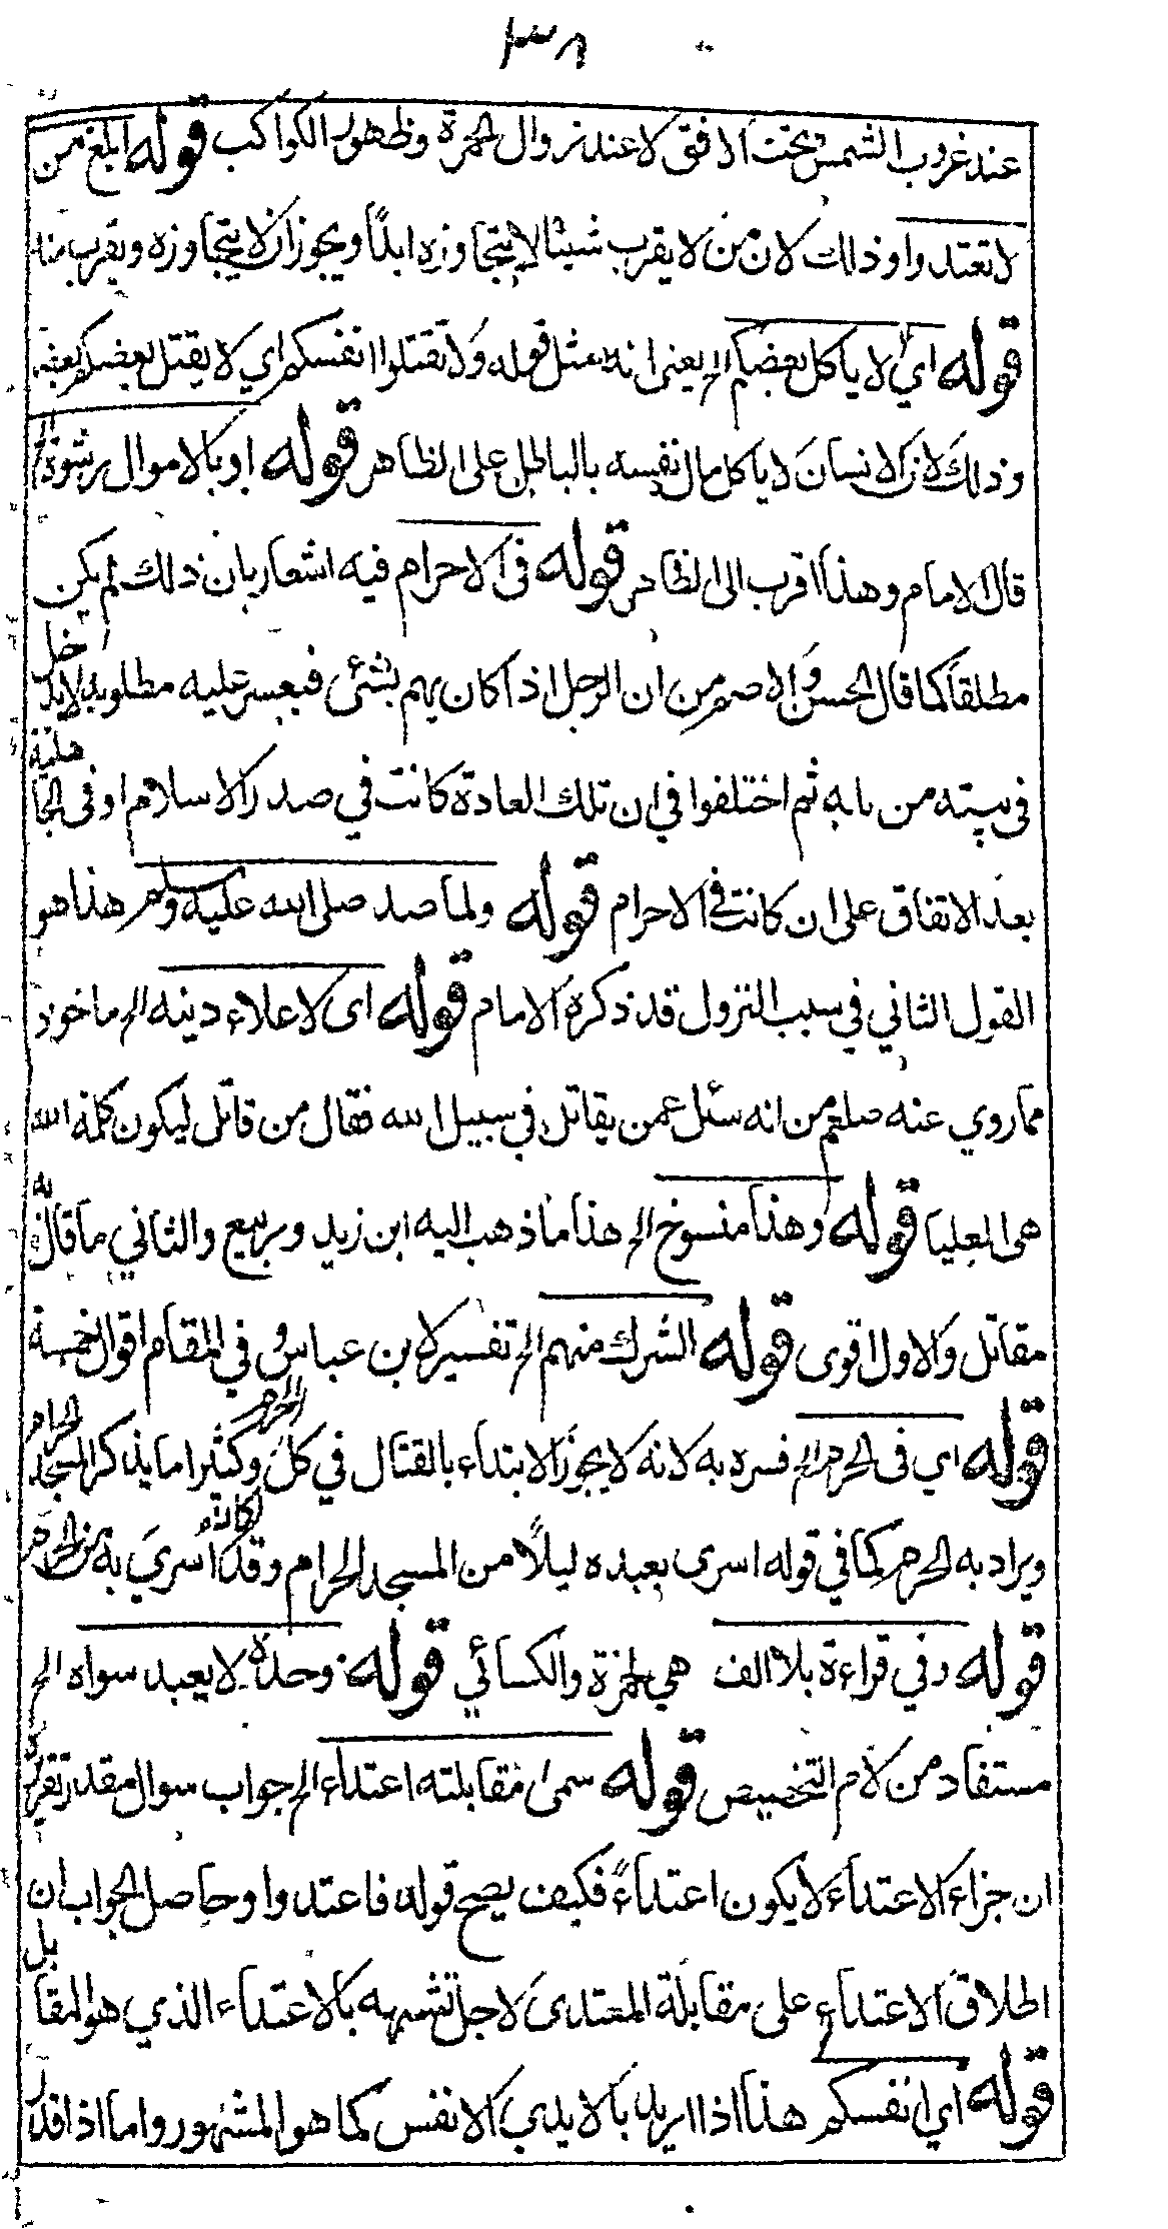 ٣٨
عند غروب الشمس تحت الافق لا عند زوال الحمرة وظهور الكواكب قوله ابلغ من
لا تعتدوا وذلك لان من لا يقرب شيئا لا يتجاوزه ابدًا ويجوز ان لا يتجاوزه ويقرب منه
قوله اي لا ياكل بعضكم الخ يعني انه مثل قوله ولا تقتلوا انفسكم اي لا يقتل بعضكم بعضه
وذلك لان الانسان لا ياكل مال نفسه بالباطل على الظاهر قوله او بالاموال رشوة الخ
قال الامام وهذا اقرب الى الظاهر قوله في الاحرام فيه اشعار بان ذلك لم يكن
مطلقاً كما قال الحسن والاصم من ان الرجل اذا كان يهم بشئ فيعسر عليه مطلوبه لا يدخل
في بيته من بابه ثم اختلفوا في ان تلك العادة كانت في صدر الاسلام او في الجاهلية
بعد الاتفاق على ان كانت في الاحرام قوله ولما صد صلى الله عليه وسلم هذا هو
القول الثاني في سبب النزول قد ذكره الامام قوله اى لاعلاء دينه الخ ماخوذ
مما روي عنه صلعم من انه سئل عمن يقاتل في سبيل الله فقال من قاتل ليكون كلمة الله
هى العليا قوله وهذا منسوخ الخ هذا ما ذهب اليه ابن زيد وربيع والثاني ما قال به
مقاتل والاول اقوى قوله الشرك منهم الخ تفسير لابن عباس وفي المقام اقوال خمسة
قوله اي فى الحرم الخ فسره به لانه لا يجوز الابتداء بالقتال في كل الحرم وكثيرا ما يذكر المسجد الحرام
ويراد به الحرم كما في قوله اسرى بعبده ليلًا من المسجد الحرام وقد كان اسرى به من الحرم
قوله وفي قراءة بلا الف هي لحمزة والكسائي قوله وحده لا يعبد سواه الخ
مستفاد من لام التخصيص قوله سمى مقابلته اعتداء الخ جواب سوال مقدر تقريره
ان جزاء الاعتداء لا يكون اعتداءً فكيف يصح قوله فاعتدوا وحاصل الجواب ان
اطلاق الاعتداء على مقابلة المعتدى لاجل تشبهه بالاعتداء الذي هو المقابل
قوله اي انفسكم هذا اذا اريد بالايدي الانفس كما هو المشهور واما اذا قدر